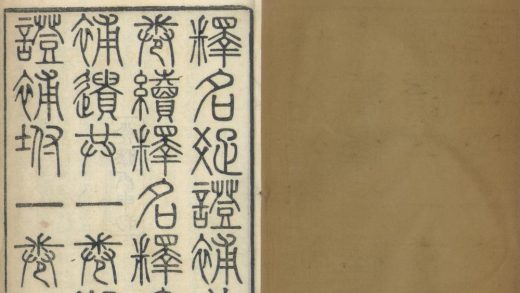 釋名疏證補
卷續釋名釋
補遺共一卷
證補坿一卷